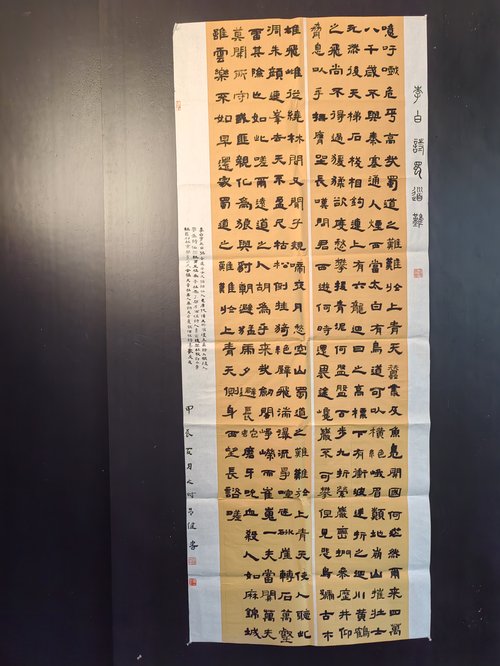 李白詩蜀道難
噫吁嚱危乎高哉蜀道之難難於上青天蠶叢及魚鳧開國何茫然爾來四萬
八千歲不與秦塞通人煙西當太白有鳥道可以橫絕峨眉巔地崩山摧壯士
死然後天梯石棧相鉤連上有六龍迴日之高標下有衝波逆折之迴川黃鶴
之飛尚不得過猿猱欲度愁攀援青泥何盤盤百步九折縈巖巒捫參歷井仰
脅息以手撫膺坐長嘆問君西遊何時還畏途巉巖不可攀但見悲鳥號古木
雄飛雌從繞林間又聞子規啼夜月愁空山蜀道之難難於上青天使人聽此
凋朱顏連峯去天不盈尺枯松倒挂猗絕壁飛湍瀑流爭喧豗砯崖轉石萬壑
雷其險也如此嗟爾遠道之人胡為乎來哉劍閣崢嶸而崔嵬一夫當關萬夫
莫開所守或匪親化為狼與豺朝避猛虎夕避長蛇磨牙吮血殺人如麻錦城
雖雲樂不如早還家蜀道之難難於上青天側身西望長諮嗟
甲辰夏月